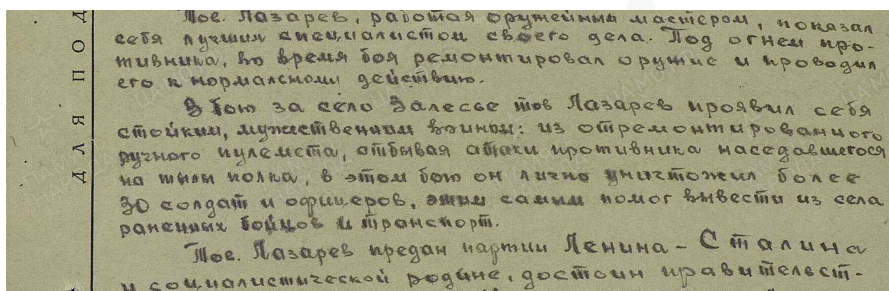 Тов. Лазарев, работая оружейным мастером, показал
себя лучшим специалистом своего дела. Под огнем про-
тивника, во время боя ремонтировал оружие и проводил
его к нормальному действию.
В бою за село Залесье тов Лазарев проявил себя
стойким, мужественным воином: из отремонтированного
ручного пулемета, отбивая атаки противника наседавшегося
на тылы полка, в этом бою он лично уничтожил более
30 солдат и офицеров, этим самым помог вывести из села
раненных бойцов и транспорт.
Тов. Лазарев предан партии Ленина - Сталина
и социалистической родине, достоин правительст-
ДЛЯ ПОД